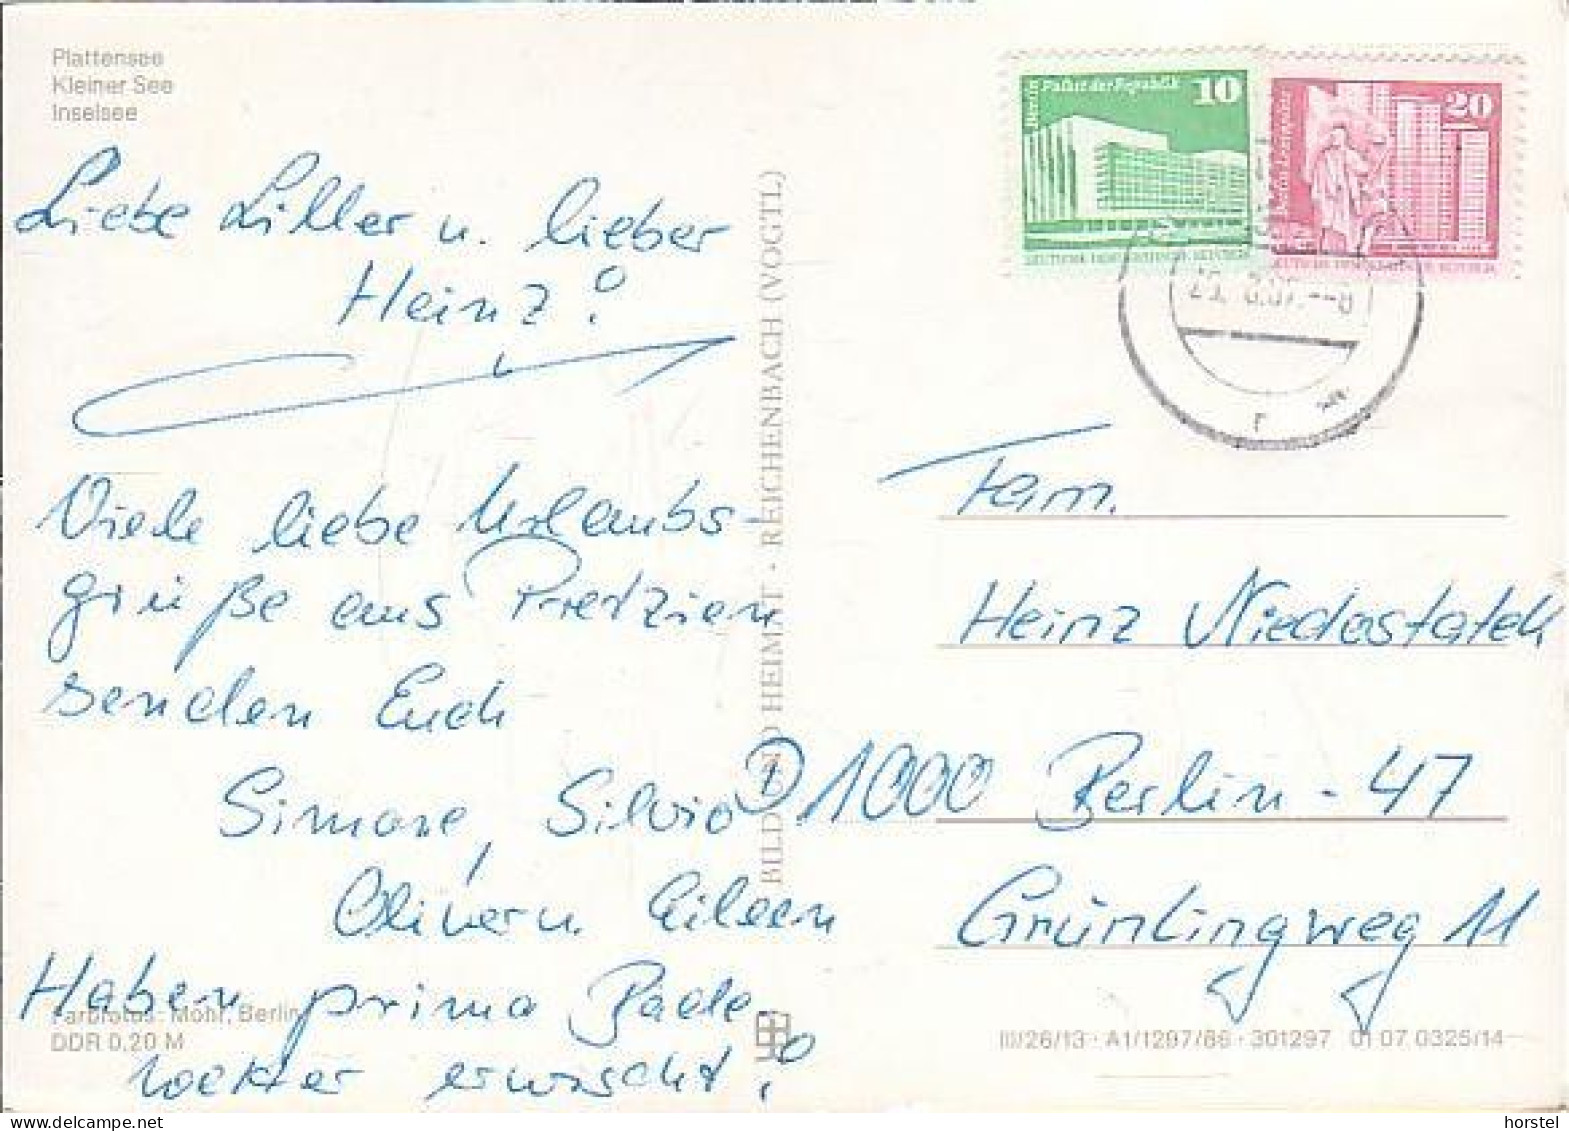 Plattensee
Kleiner See
Inselsee
Liebe Liller u. lieber
Heinz!
Viele liebe Urlaubs-
grüße aus Pretzien
senden Euch
Simone, Silvio
Oliver u. Eileen
Haben prima Bade-
wetter erwischt!
Farbfotos: Mohr, Berlin
DDR 0,20 M
BILD UND HEIMAT · REICHENBACH (VOGTL)
Berlin Palast der Republik 10
DEUTSCHE DEMOKRATISCHE REPUBLIK
20
DEUTSCHE DEMOKRATISCHE REPUBLIK
Fam.
Heinz
D 1000 Berlin - 47
Grünlingweg 11
III/26/13 · A1/1297/86 · 301297 01 07 0325/14
horstel